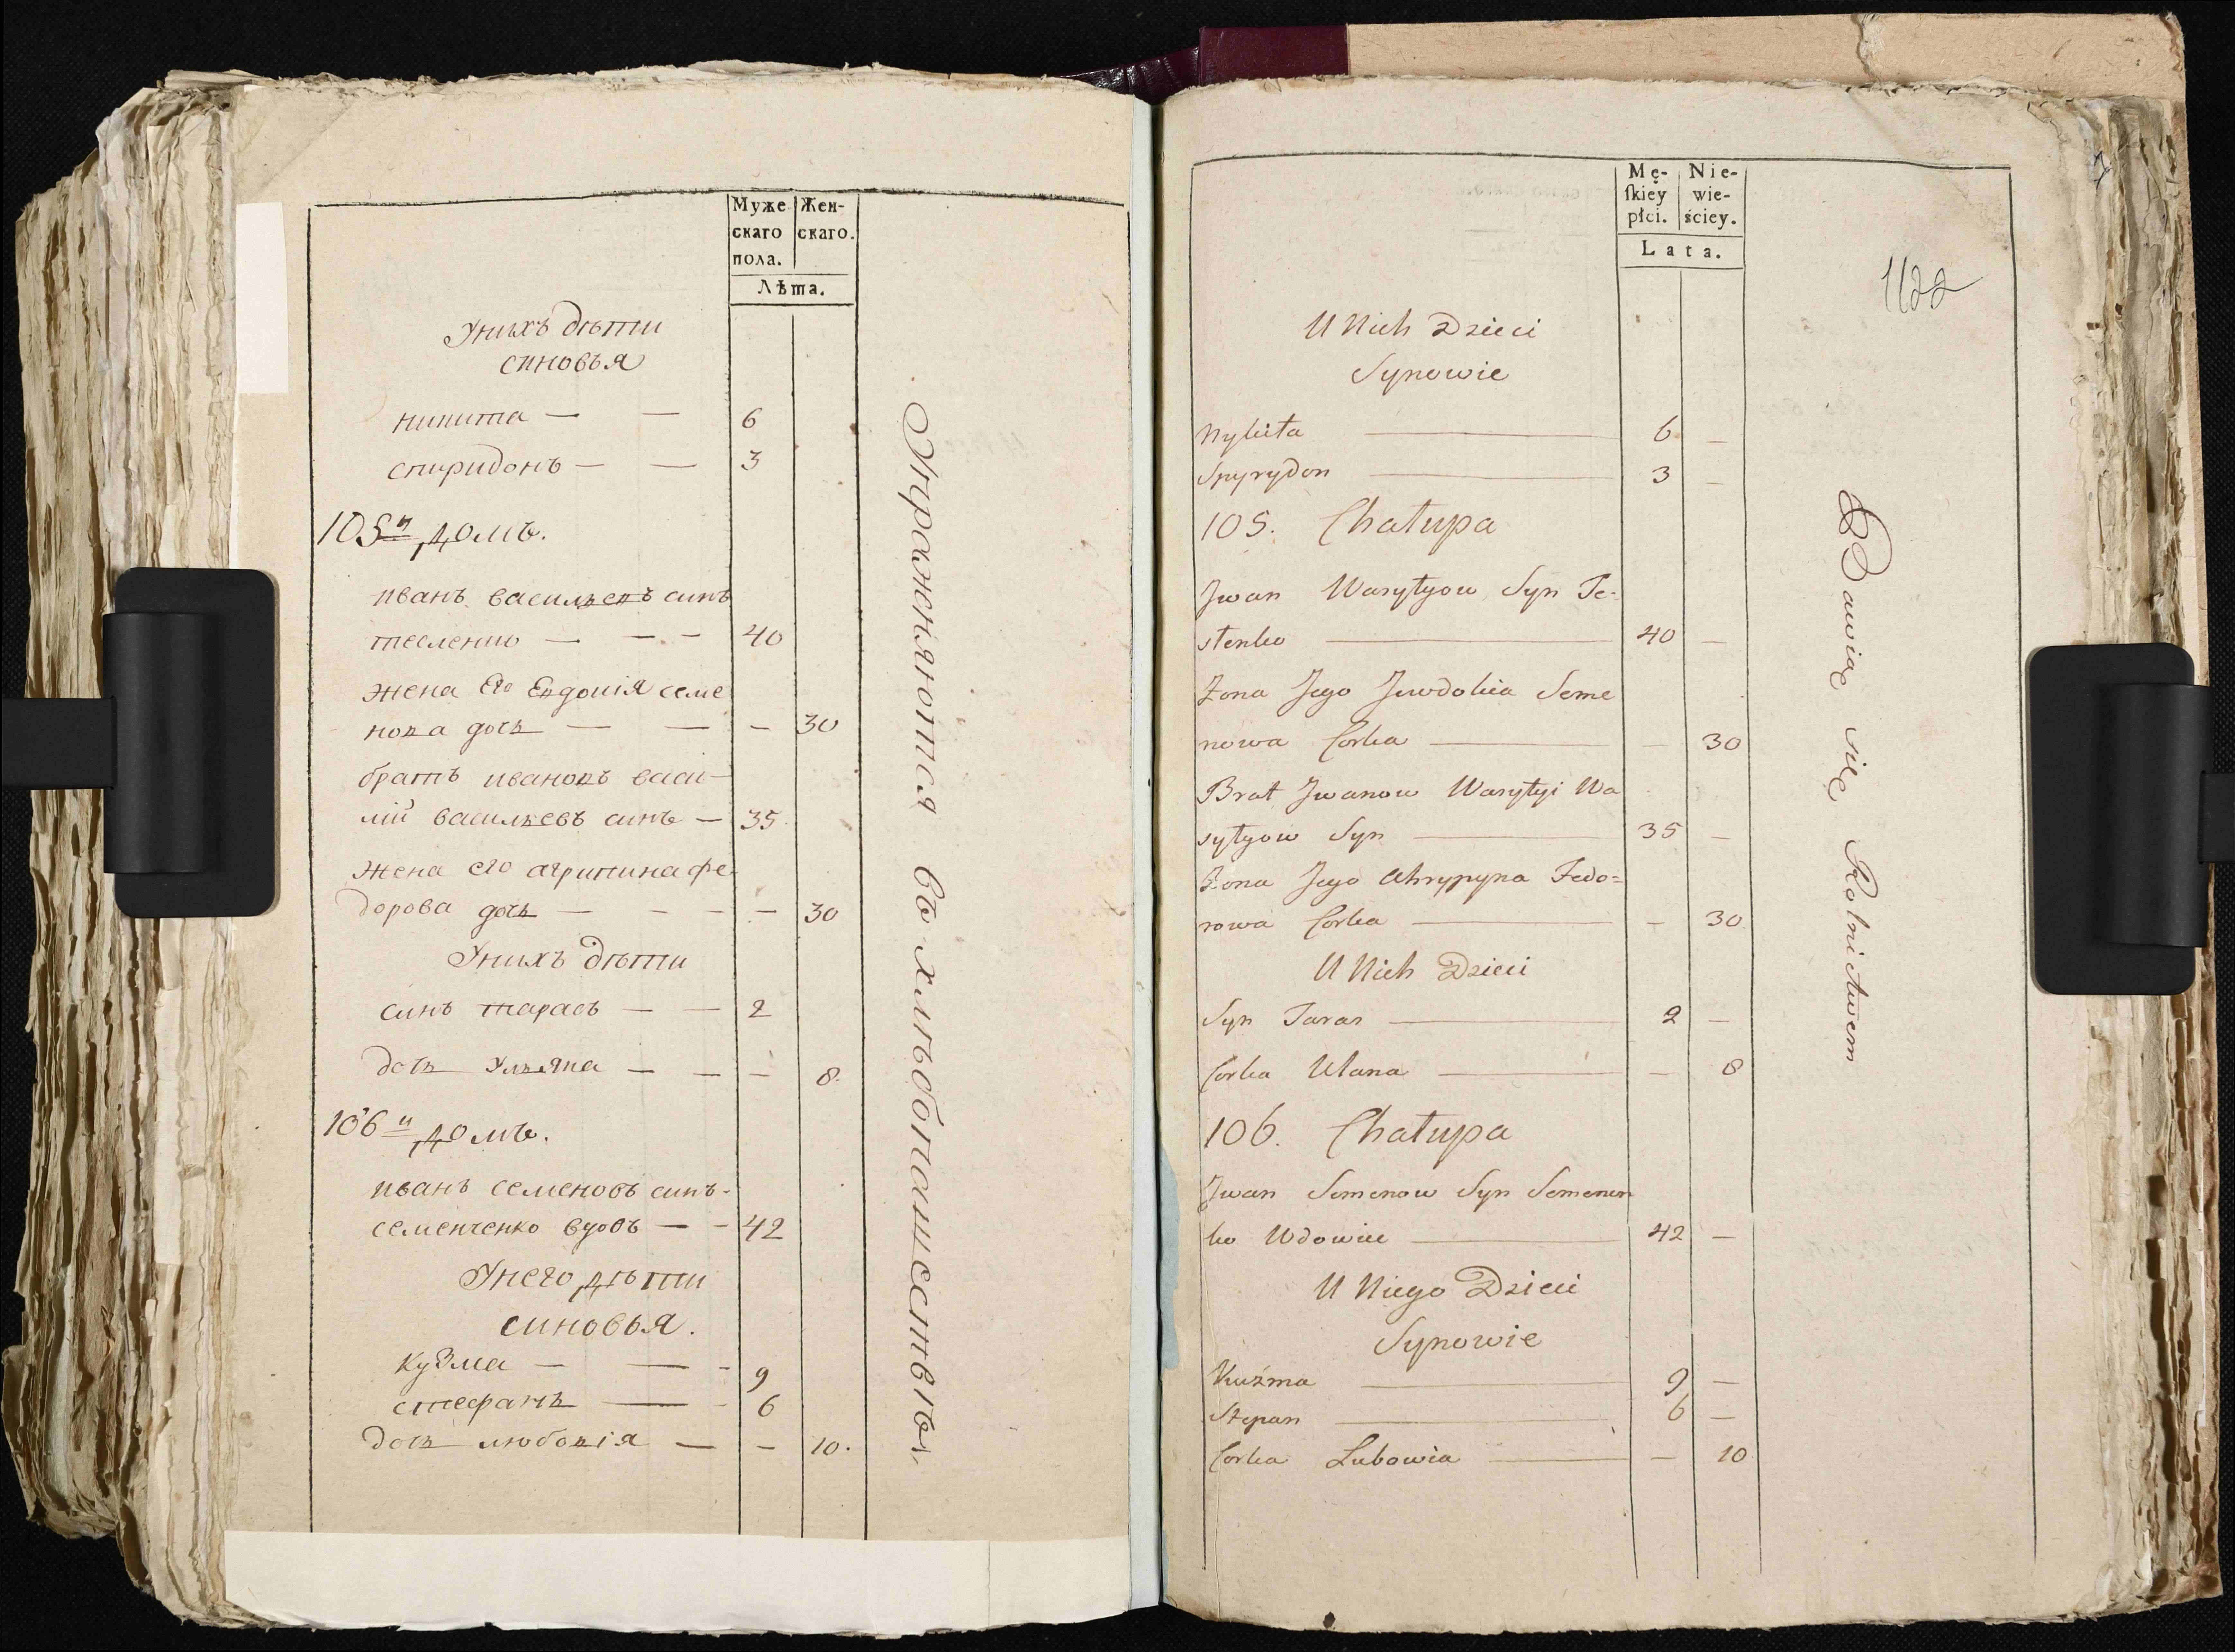 Муже Жен-
скаго скаго.
пола.
Лѣта.
Унихъ дѣти
синовья
никита — — 6
спиридонъ — — 3
105й домъ.
иванъ васильевъ синъ
тесленко — — - 40
жена Его Евдокія семе
нова дочь — — — 30
братъ ивановъ васи-
лій васильевъ синъ — 35
жена его агрипина фе-
дорова дочь — - - — 30
Унихъ дѣти
синъ тарасъ — — 2
дочь ульяна — — — 8.
106й домъ.
иванъ семеновъ синъ-
семенченко вдовъ — - 42
Унего дѣти
синовья.
кузма — — - 9
стефанъ — - 6
дочь любовія — — 10.
Упражняются въ хлѣбопашествѣ.
Mę- Nie-
skiey wie-
płci. ściey.
Lata.
1122
U Nich Dzieci
Synowie
Nykita — 6 —
Spyrydon — 3 —
105. Chałupa
Jwan Wasyłyow Syn Te-
slenko — 40 —
Zona Jego Jewdokia Seme
nowa Corka — — 30
Brat Jwanow Wasyłyi Wa
syłyow Syn — 35 —
Zona Jego Ahrypyna Fedo=
rowa Corka — — 30
U Nich Dzieci
Syn Taras — 2 —
Corka Ulana — — 8
106. Chałupa
Jwan Semenow Syn Semenen
ko Wdowiec — 42 —
U Niego Dzieci
Synowie
Kuźma — 9 —
Stepan — 6 —
Corka Lubowia — — 10
Bawią się Rolnictwem